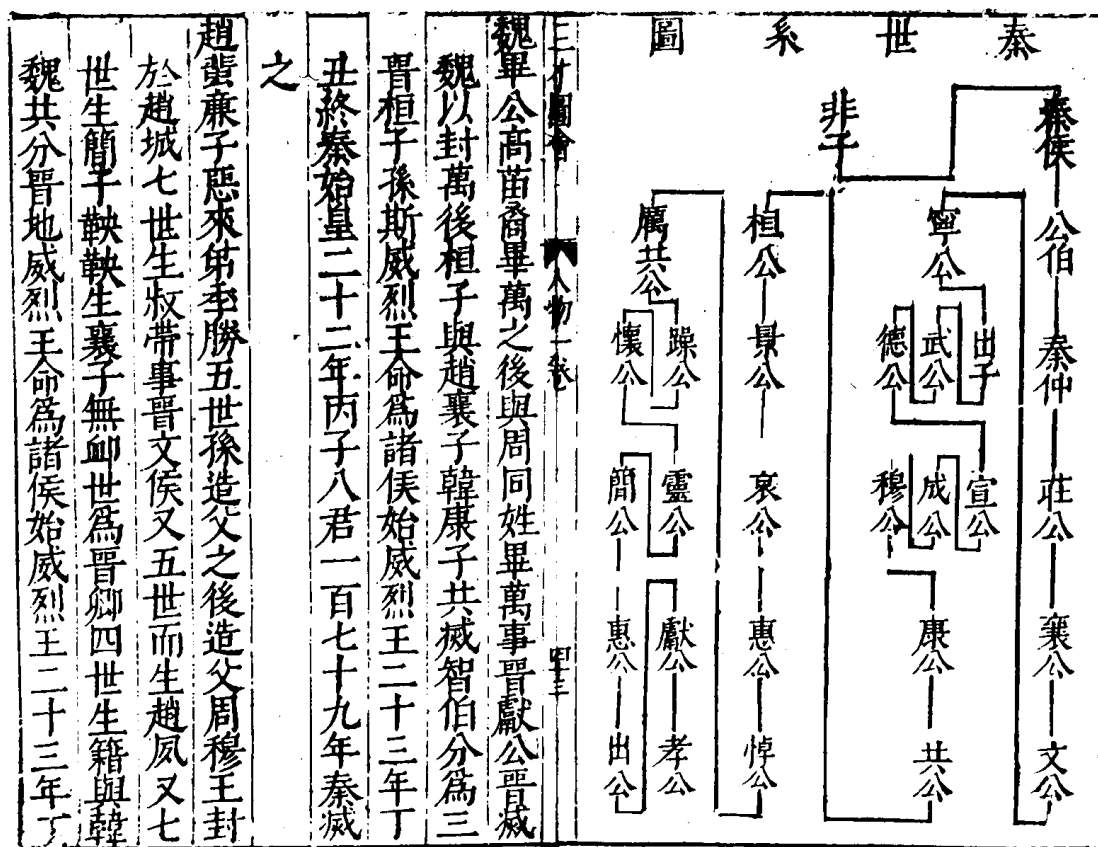 秦世系圖
非子
秦侯 公伯 秦仲 莊公 襄公 文公
寧公
出子
武公
德公
宣公
成公
穆公
康公 共公
桓公 景公 哀公 惠公 悼公
厲共公
躁公
懷公
靈公
簡公 惠公 出公
獻公 孝公
三才圖會 人物一卷 四十三
魏畢公高苗裔畢萬之後與周同姓畢萬事晉獻公晉滅
魏以封萬後桓子與趙襄子韓康子共滅智伯分為三
晉桓子孫斯威烈王命爲諸侯始威烈王二十三年丁
丑終秦始皇二十二年丙子八君一百七十九年秦滅
之
趙蜚廉子惡來弟季勝五世孫造父之後造父周穆王封
於趙城七世生叔帶事晉文侯又五世而生趙夙又七
世生簡子鞅鞅生襄子無卹世爲晉卿四世生籍與韓
魏共分晉地威烈王命爲諸侯始威烈王二十三年丁